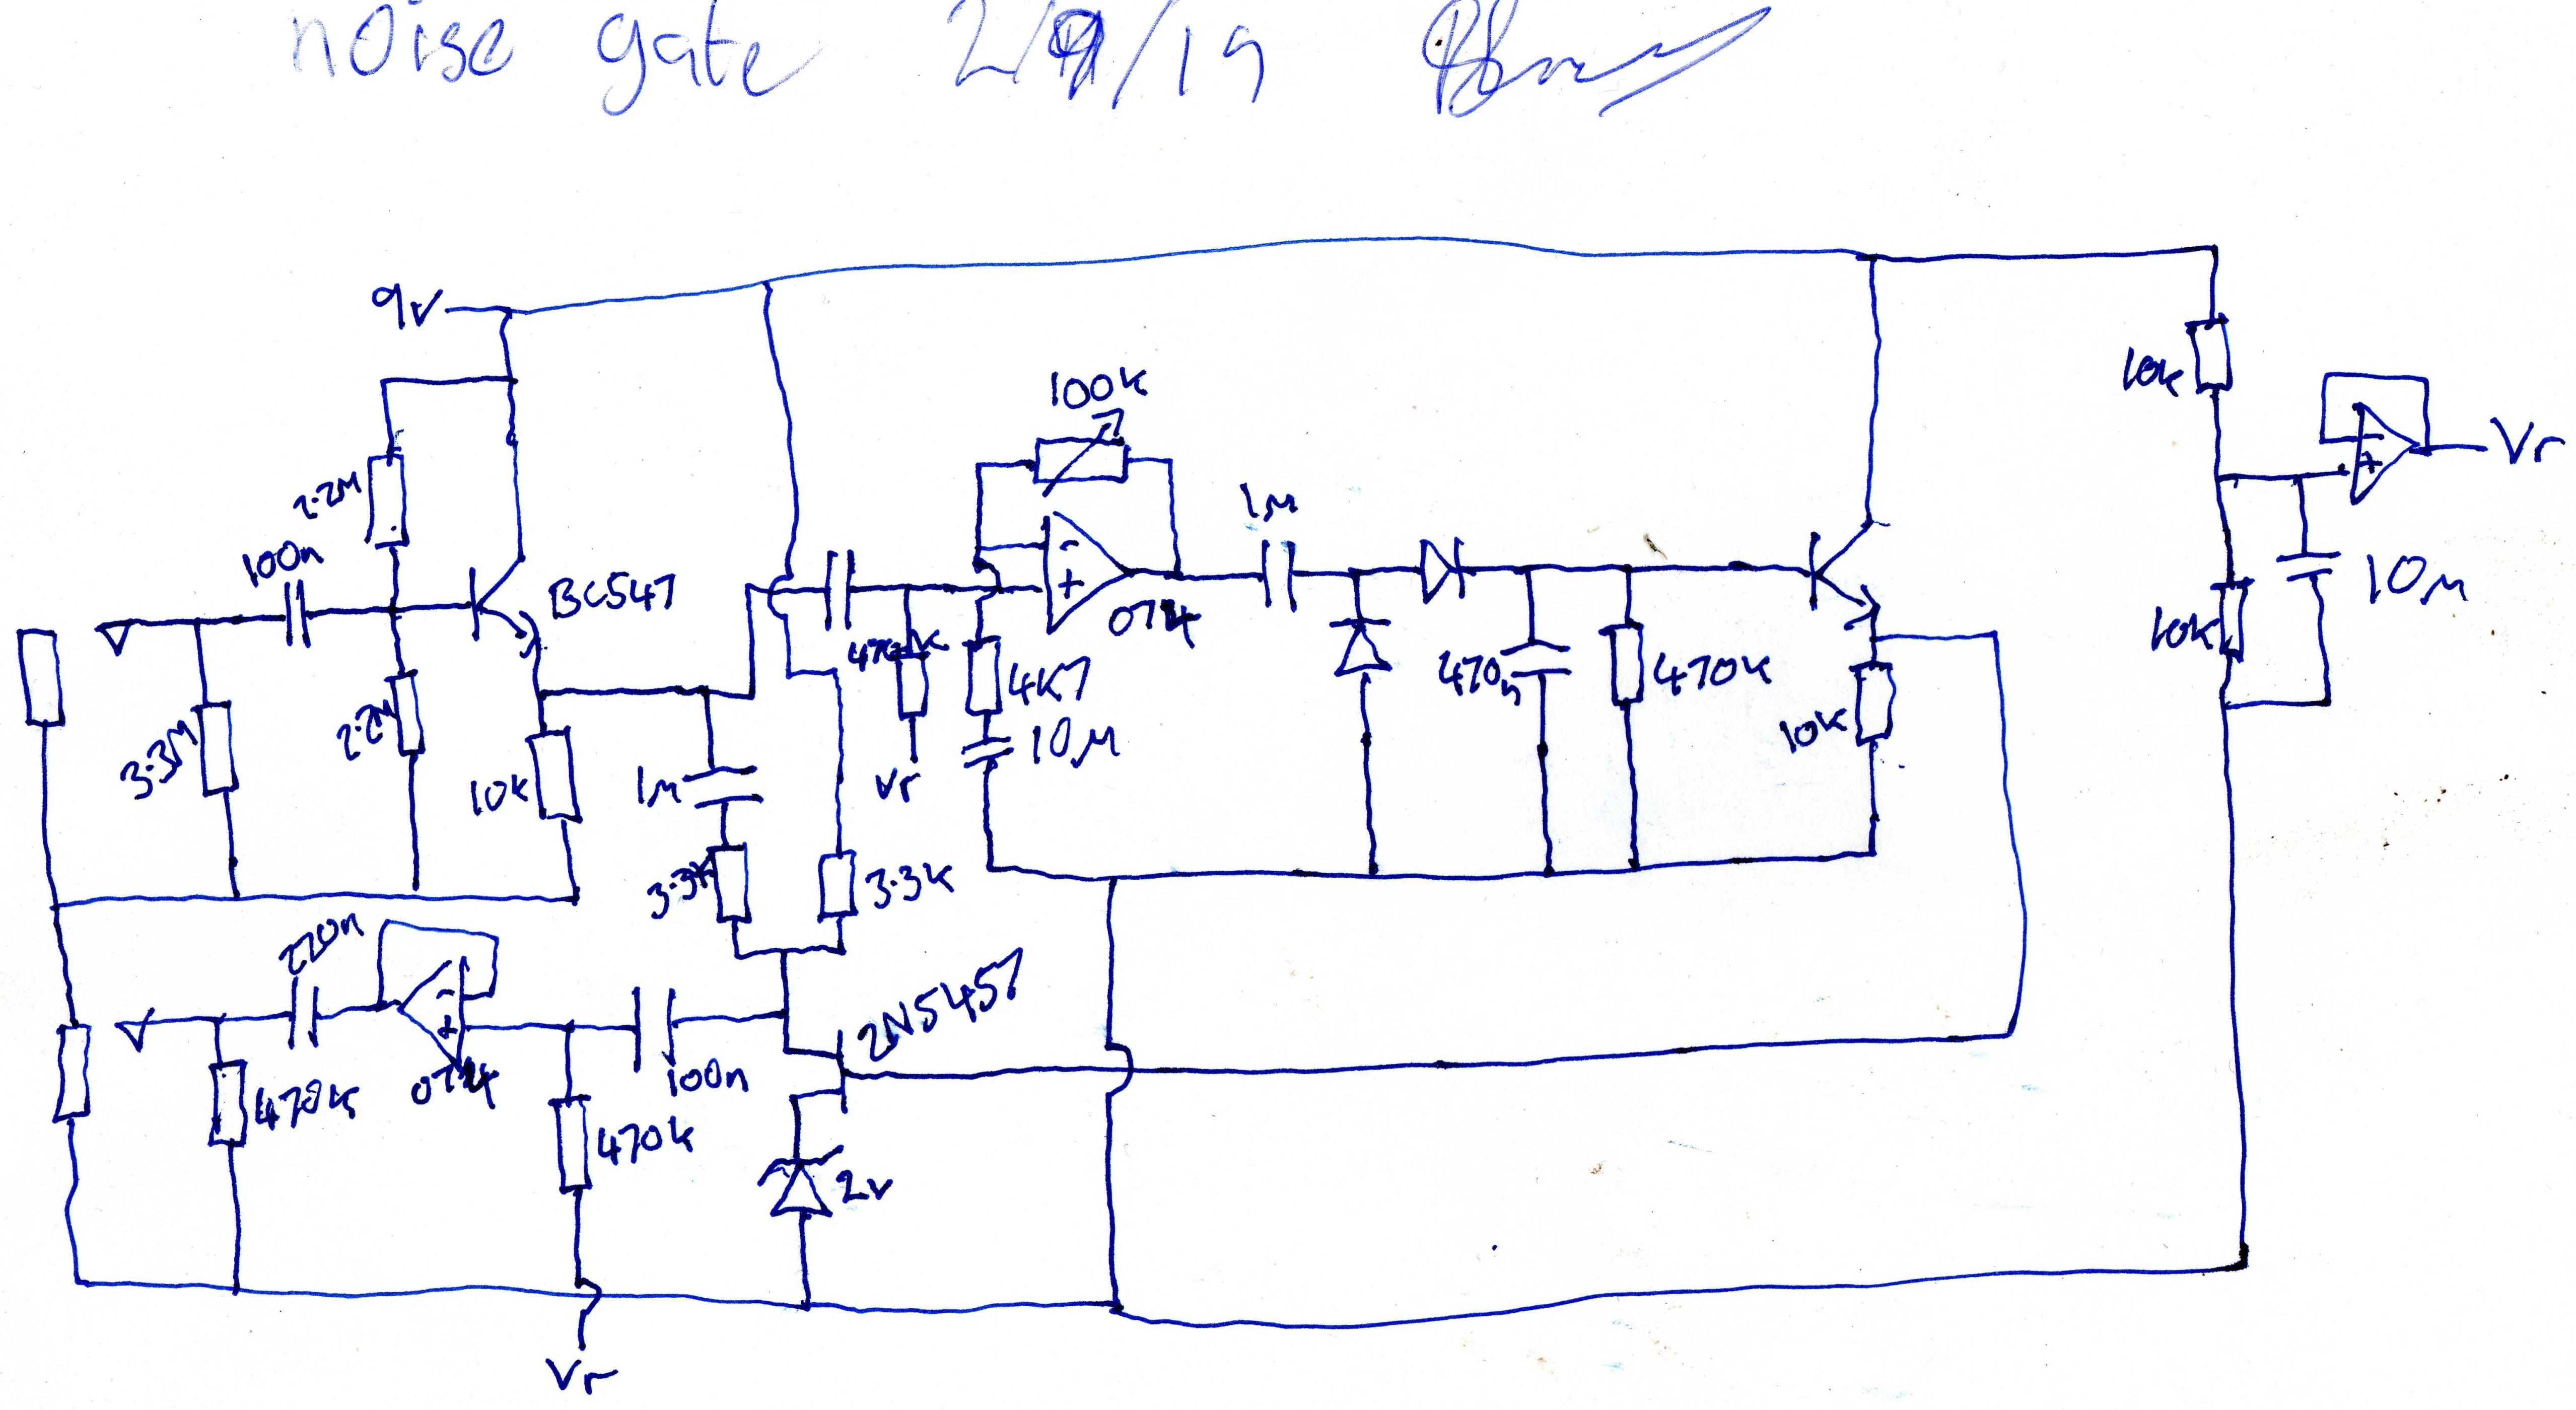 noise gate 2/9/19
9v
100k
10k
2.2M
Vr
100n
1µ
BC547
10µ
074
470k
4K7
470n
470k
10k
3.3M
2.2M
10k
1µ
Vr
10µ
10k
3.3K
3.3K
220n
2N5457
470k
074
100n
470k
2v
Vr